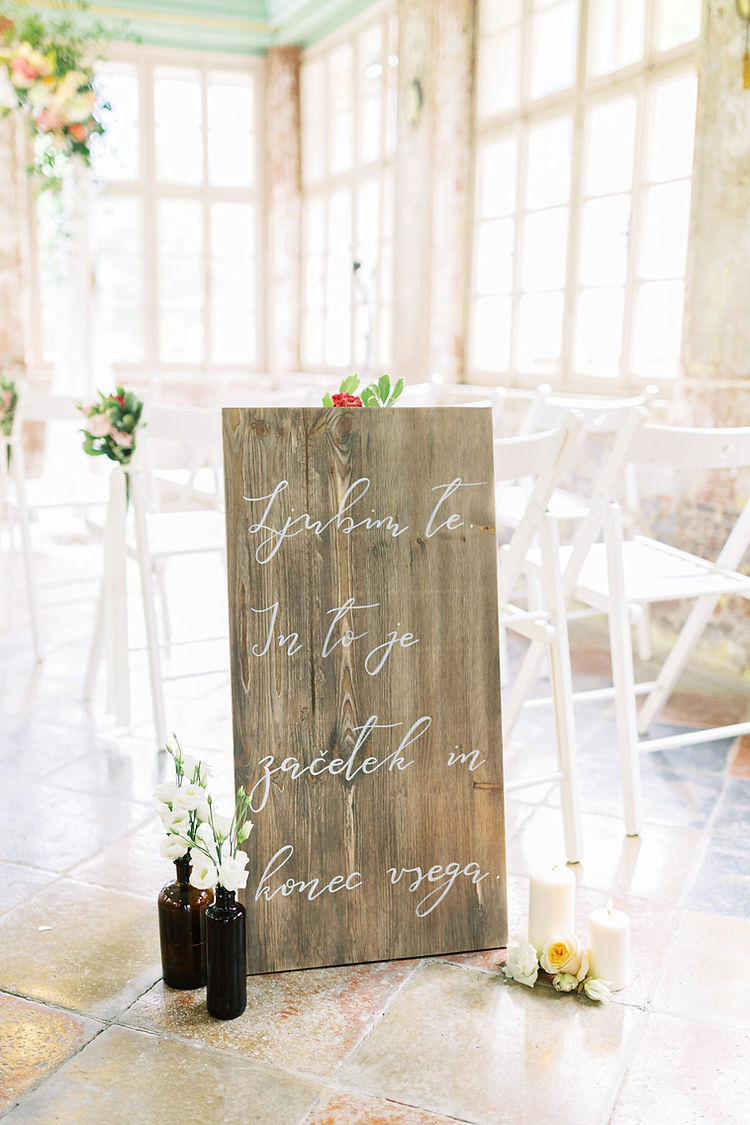 Ljubim te.
In to je
začetek in
konec vsega.